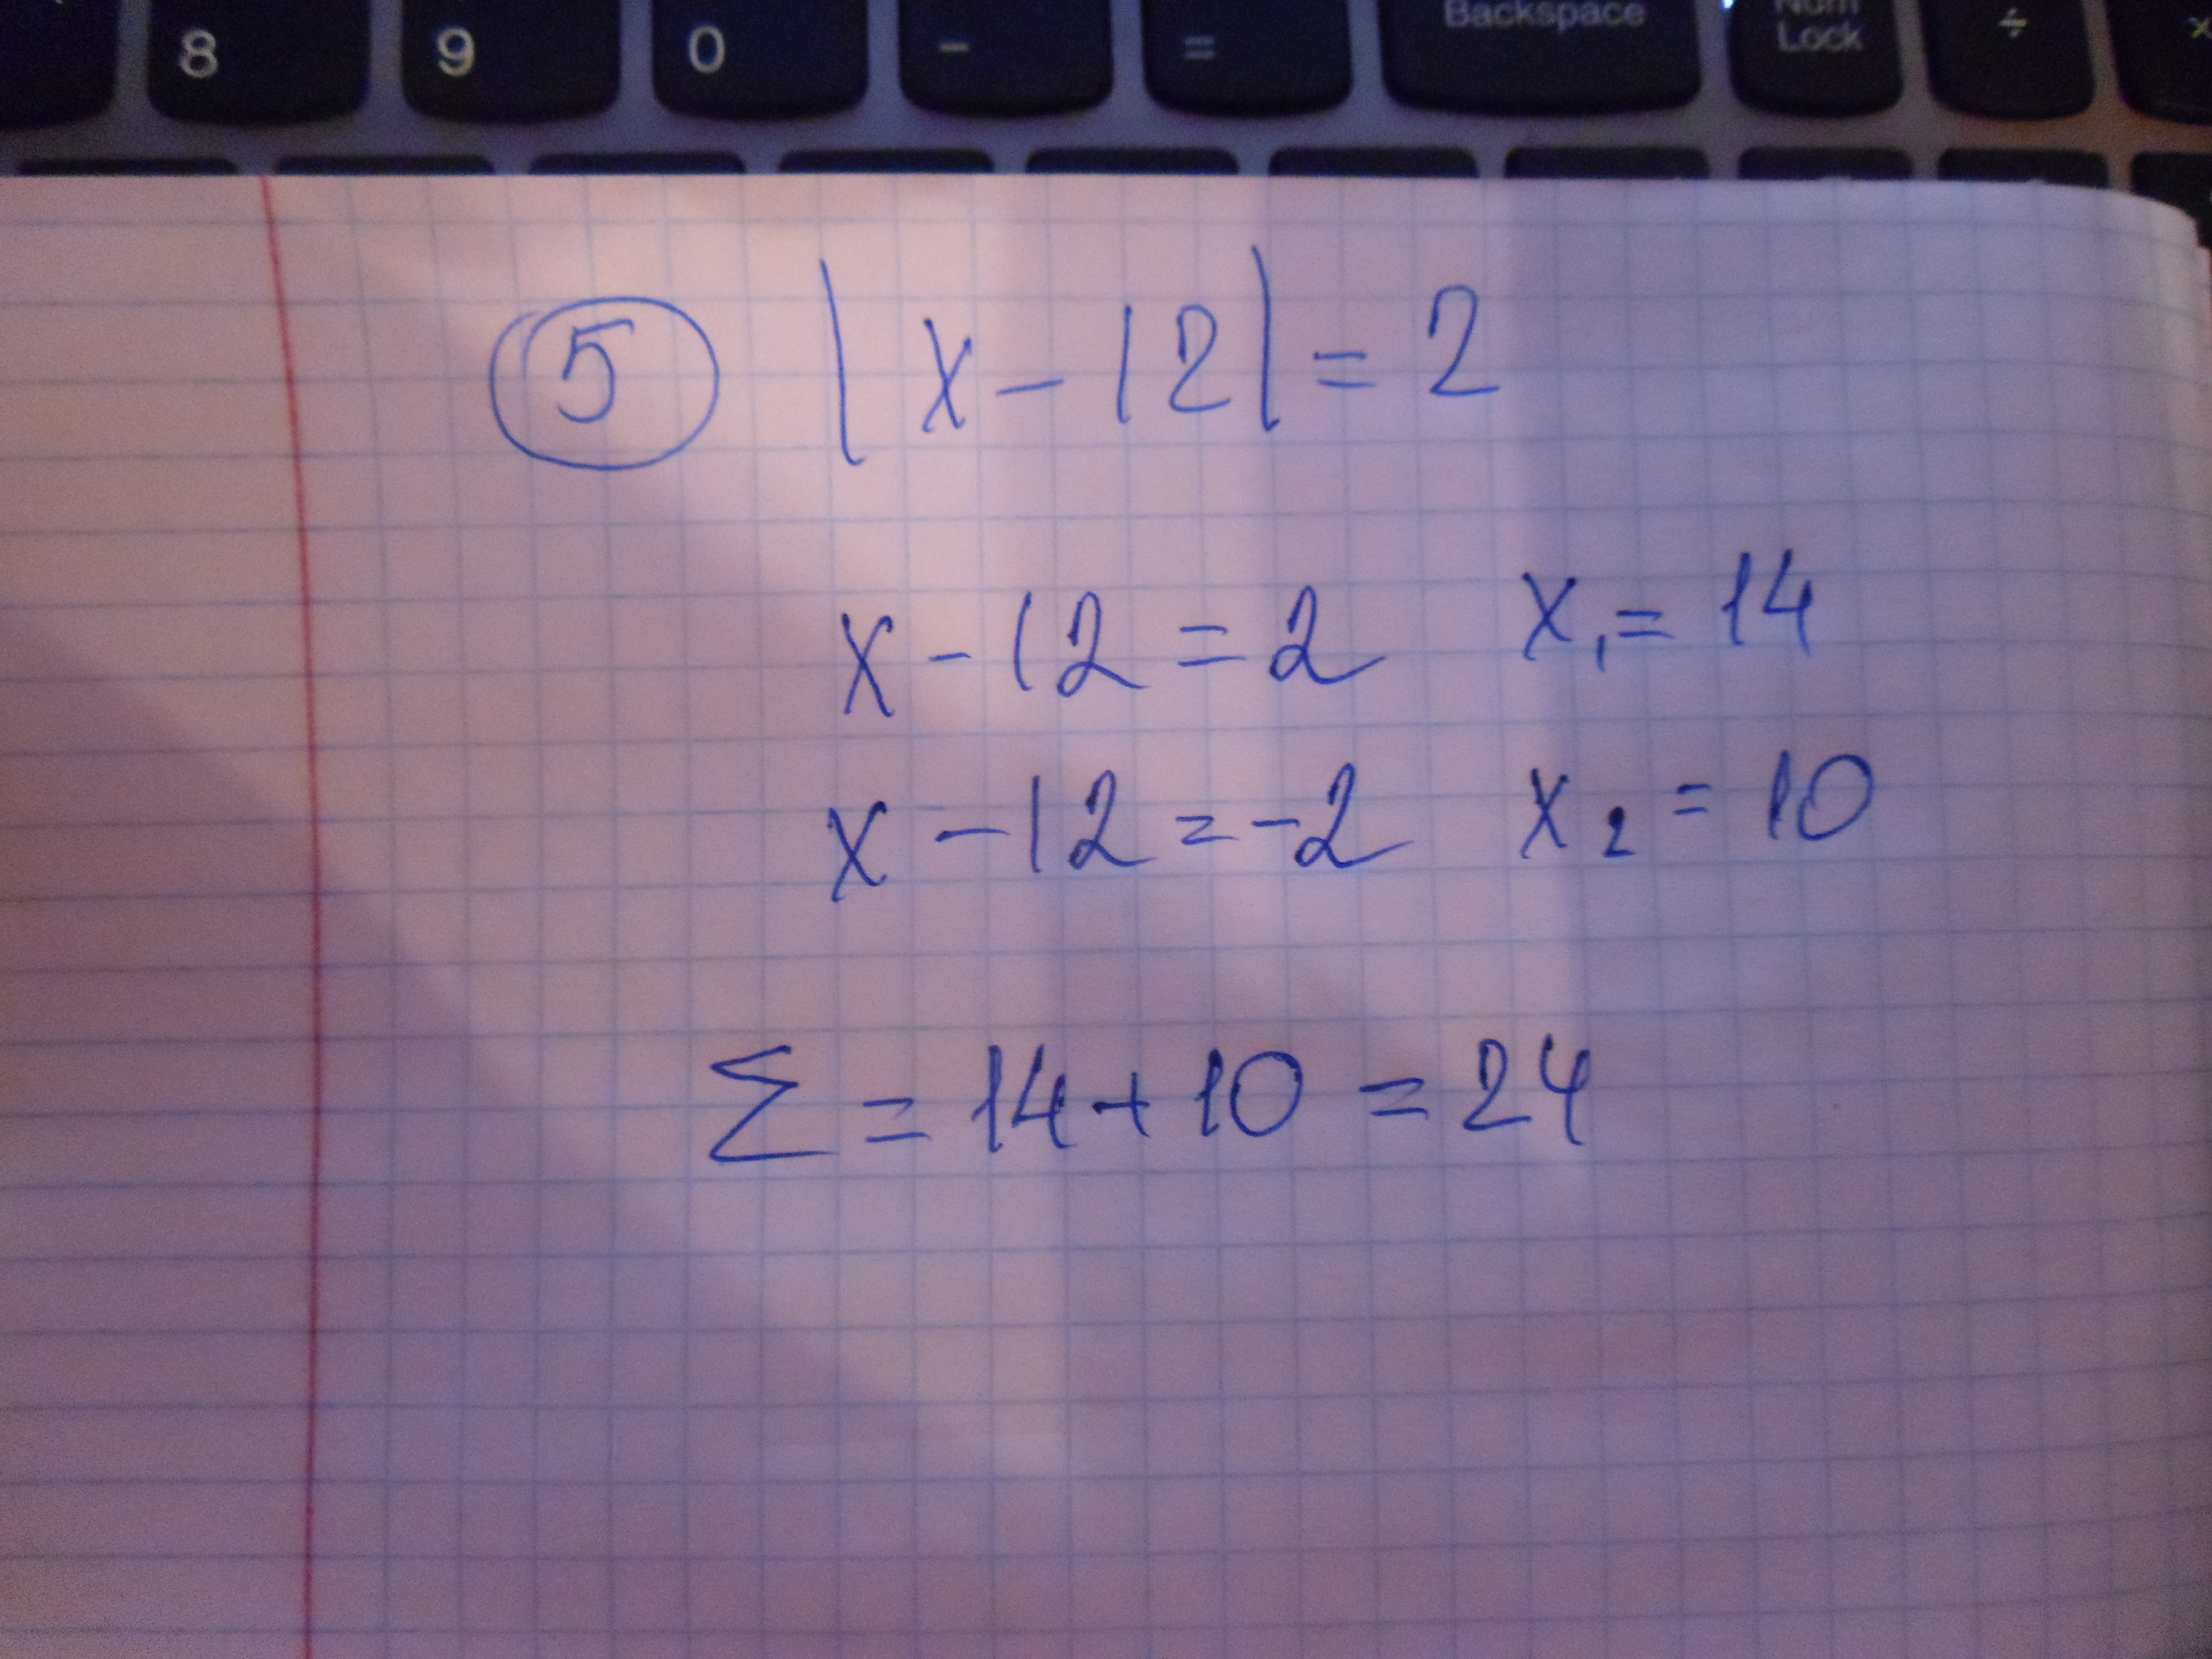 8 9 0 - = Backspace Num Lock ÷ ×
5 |x-12|=2
x-12=2 x₁=14
x-12=-2 x₂=10
Σ=14+10=24